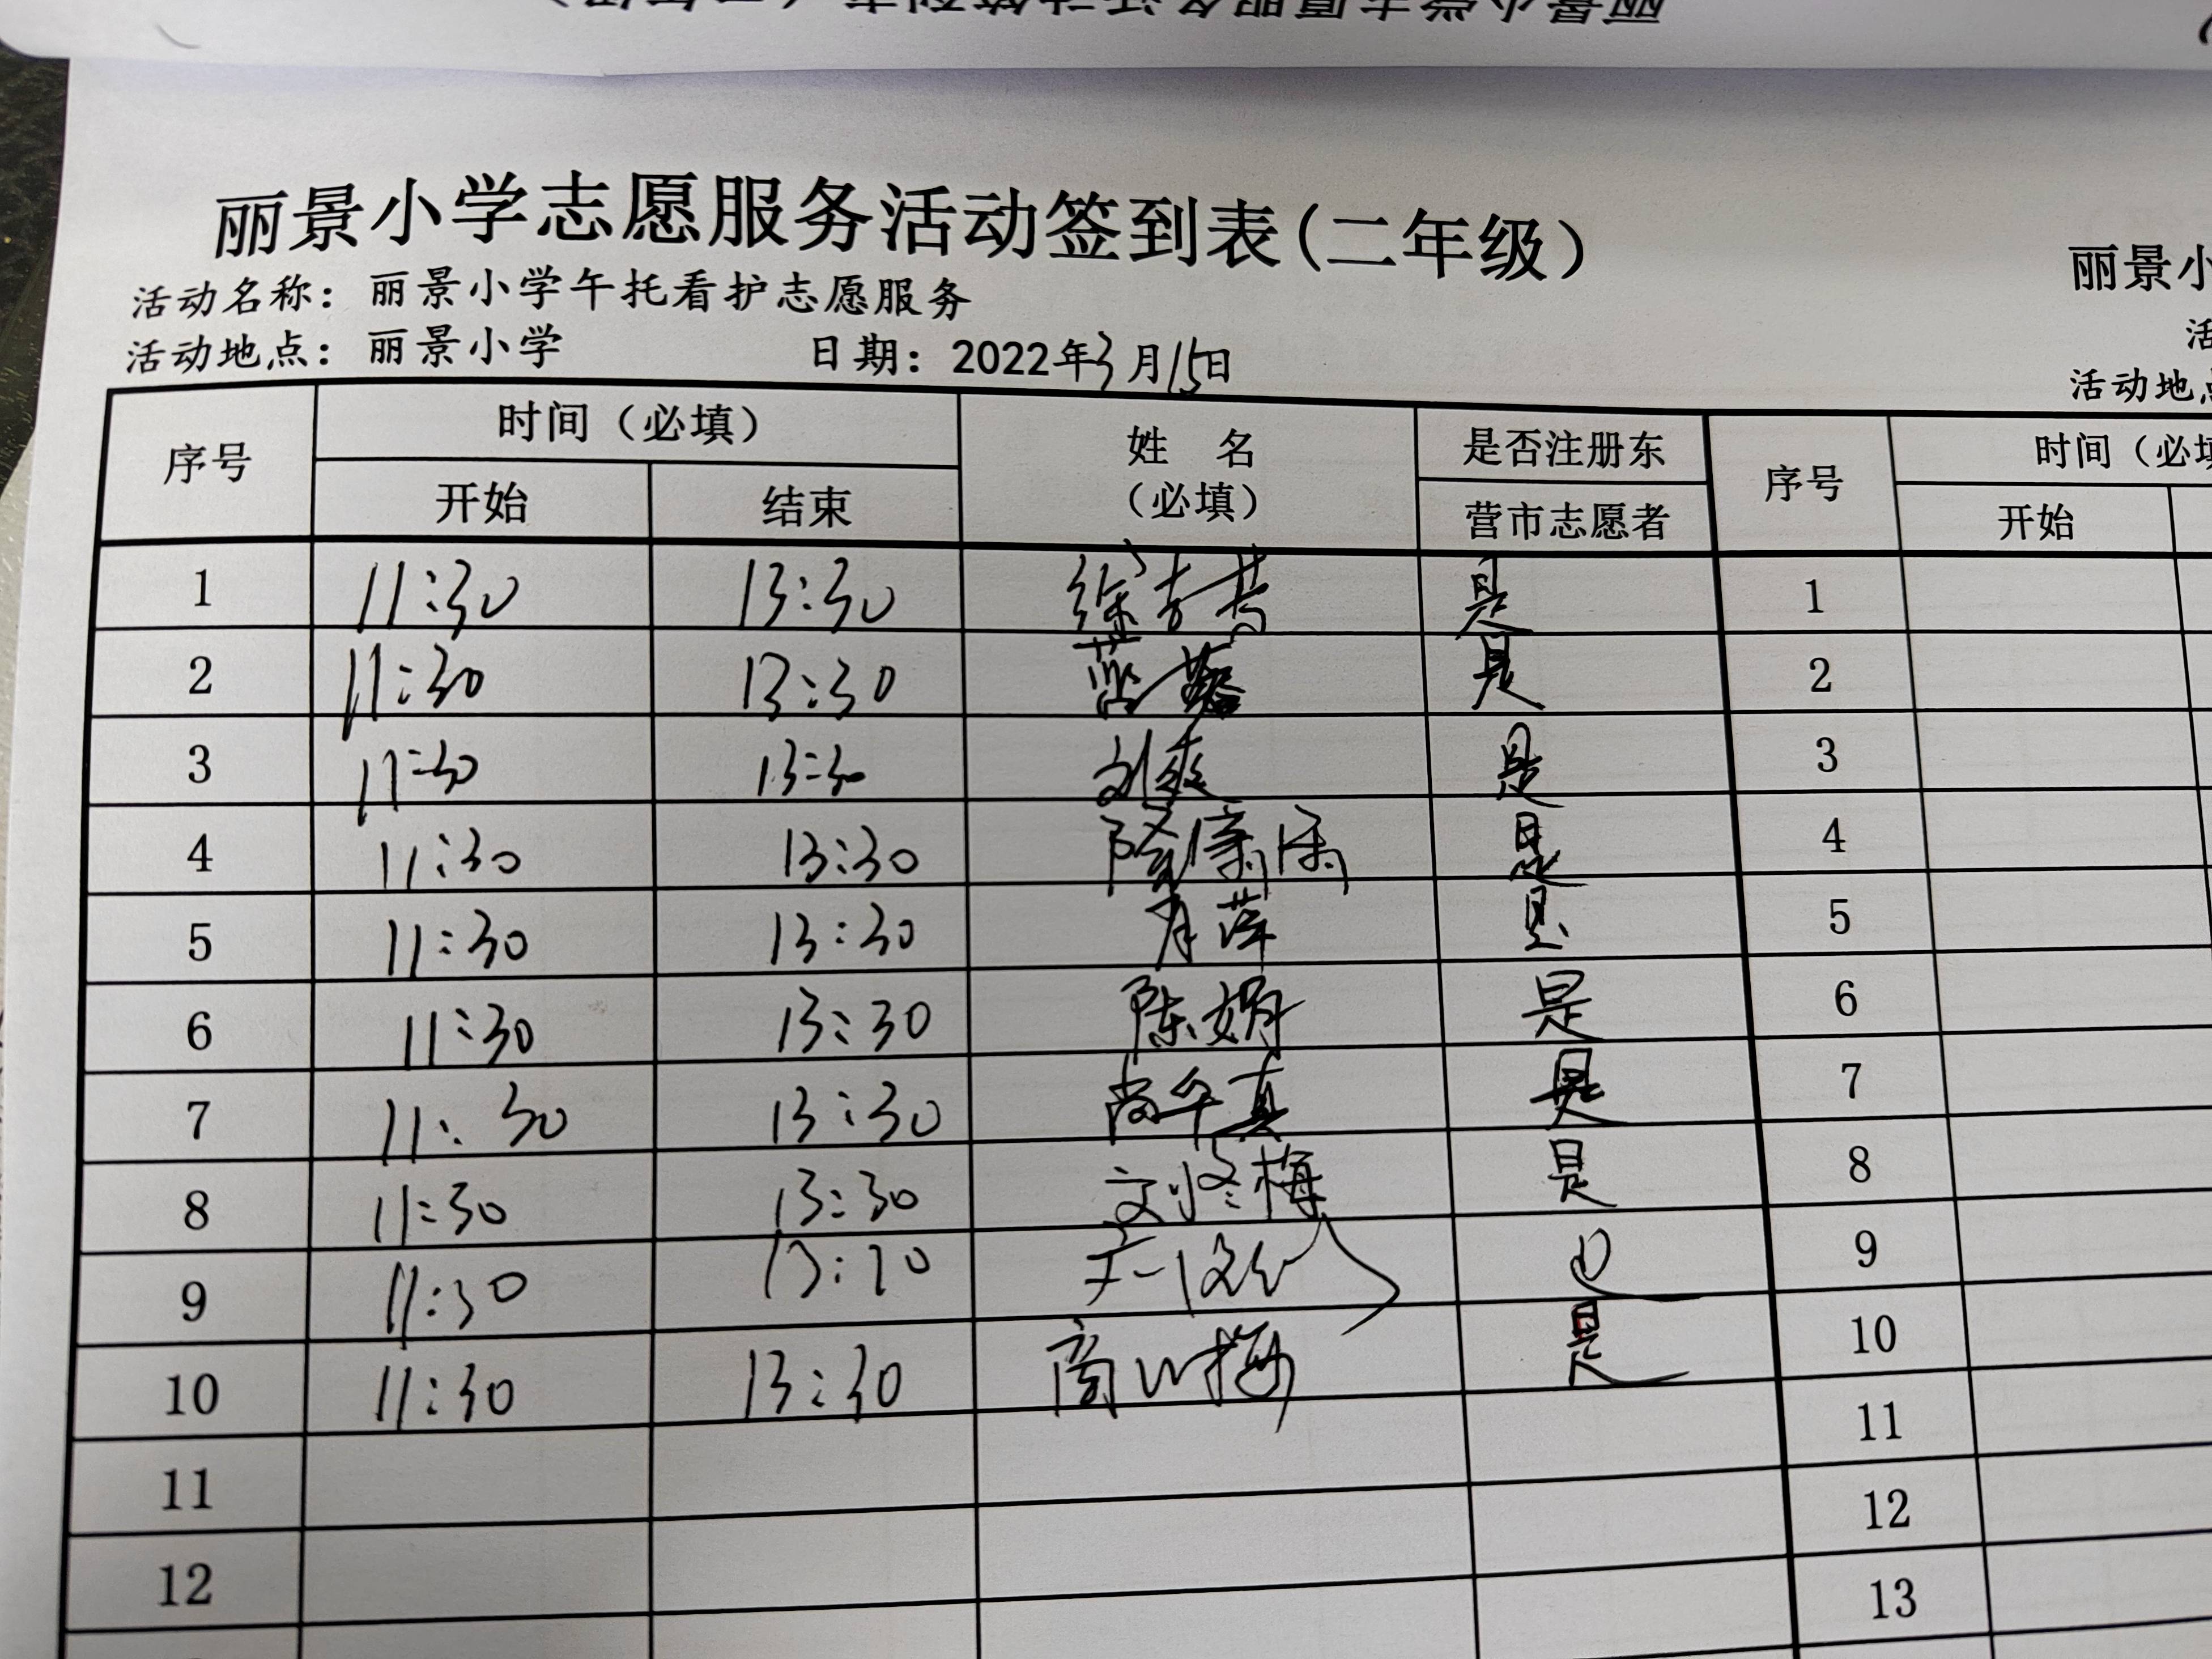 丽景小学志愿服务活动签到表(二年级)
活动名称：丽景小学午托看护志愿服务
活动地点：丽景小学 日期：2022年3月15日
序号 时间（必填） 姓 名（必填） 是否注册东营市志愿者
开始 结束
1 11:30 13:30 是
2 11:30 13:30 是
3 11:30 13:30 刘爽 是
4 11:30 13:30 是
5 11:30 13:30 是
6 11:30 13:30 陈娟 是
7 11:30 13:30 尚华真 是
8 11:30 13:30 刘冬梅 是
9 11:30 13:30
10 11:30 13:30 是
11
12
丽景小
活
活动地点
序号 时间（必填
开始
1
2
3
4
5
6
7
8
9
10
11
12
13